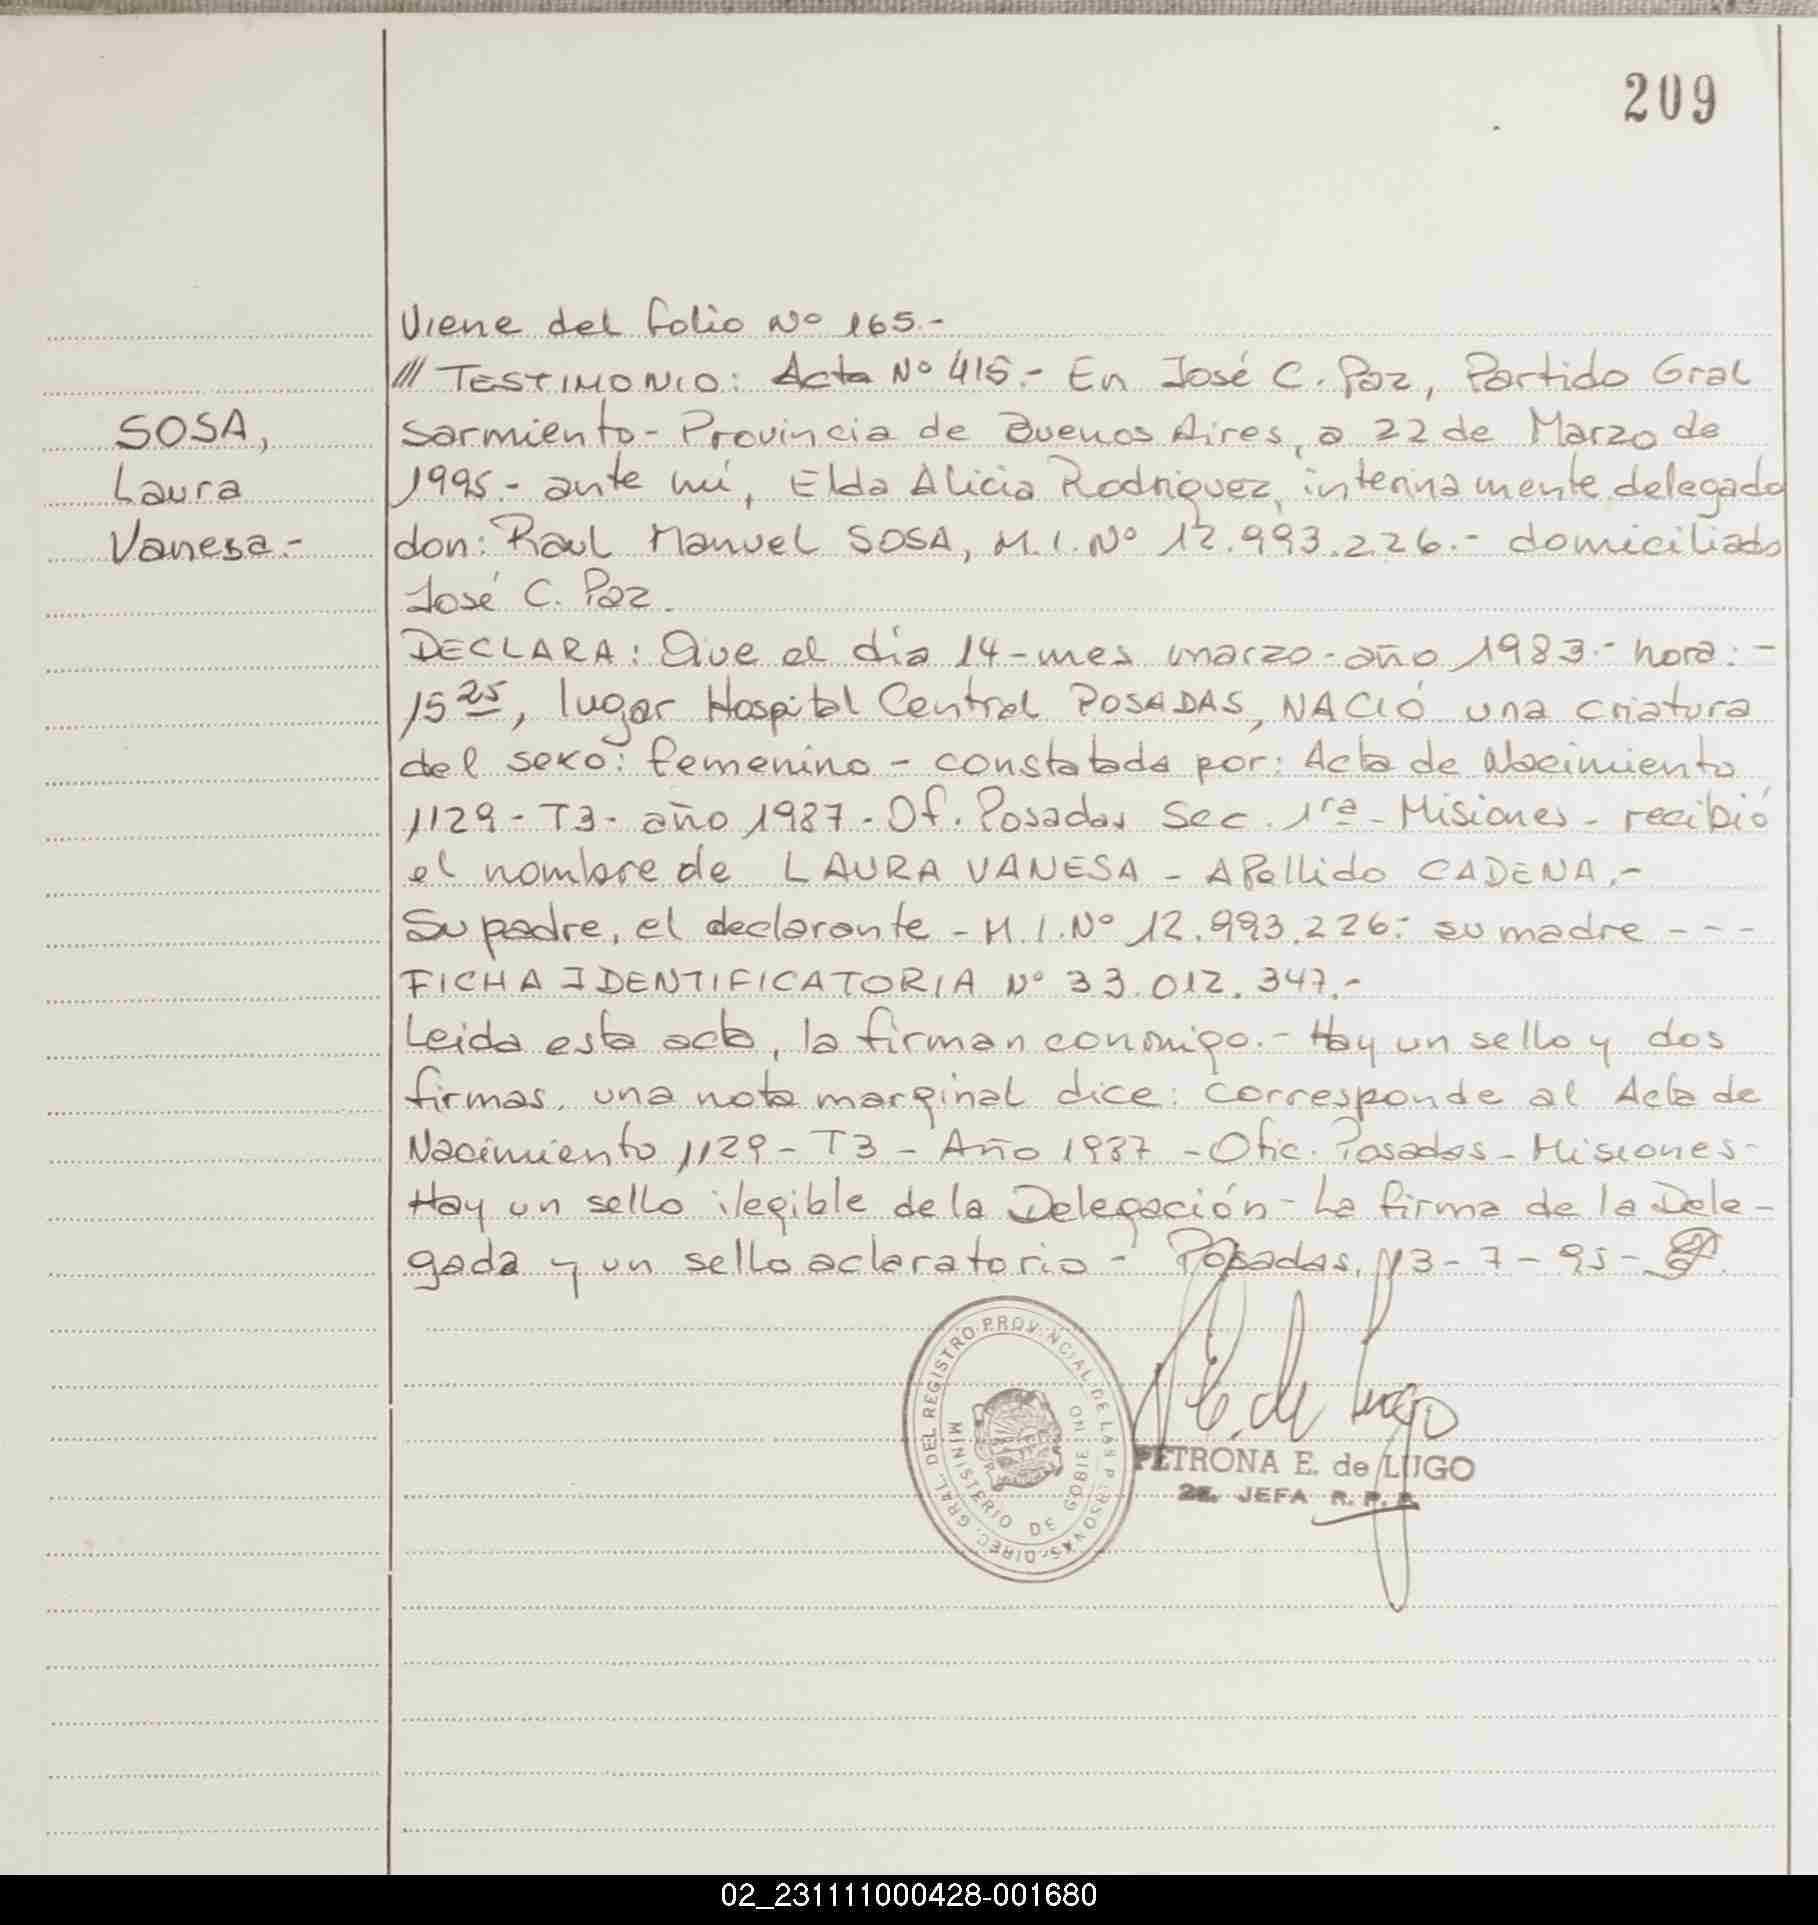 209
Viene del folio Nº 165.-
/// TESTIMONIO: Acta Nº 415.- En José C. Paz, Partido Gral
Sarmiento - Provincia de Buenos Aires, a 22 de Marzo de
1995 - ante mí, Elda Alicia Rodriguez, interinamente delegado
don: Raul Manuel SOSA, M.I. Nº 12.993.226.- domiciliado
José C. Paz.
SOSA,
Laura
Vanesa.-
DECLARA: Que el día 14 - mes marzo - año 1983.- hora: -
15 25, lugar Hospital Central POSADAS, NACIÓ una criatura
del sexo: femenino - constatada por: Acta de Nacimiento
1129 - T3 - año 1987 - Of. Posadas Sec. 1ra - Misiones - recibió
el nombre de LAURA VANESA - APellido CADENA.-
Su padre, el declarante - M.I. Nº 12.993.226.- su madre - - -
FICHA IDENTIFICATORIA Nº 33.012.347.-
Leida esta acta, la firman conmigo.- Hay un sello y dos
firmas. una nota marginal dice: corresponde al Acta de
Nacimiento 1129 - T3 - Año 1987 - Ofic. Posadas - Misiones -
Hay un sello ilegible de la Delegación - La firma de la Dele-
gada y un sello aclaratorio - Posadas, 13 - 7 - 95 -
DIREC. GRAL. DEL REGISTRO PROVINCIAL DE LAS PERSONAS
MINISTERIO DE GOBIERNO
E. de Lugo
PETRONA E. de LUGO
2a. JEFA R. P. P.
02_231111000428-001680